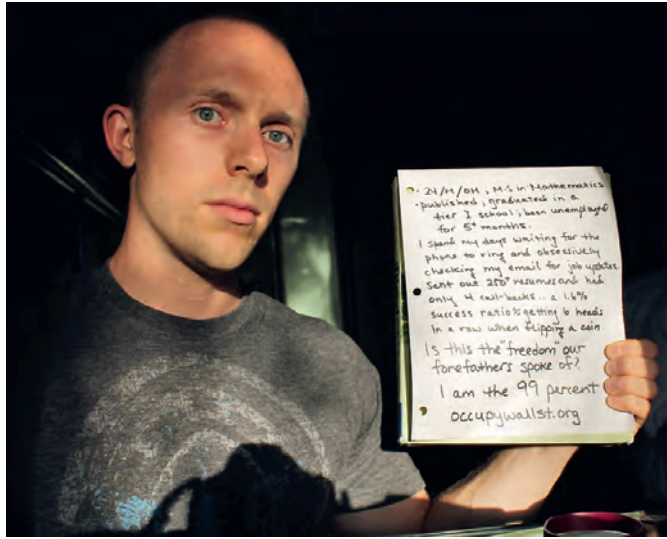 · 24/M/OH, M.S in Mathematics
· published, graduated in a
tier 1 school, been unemployed
for 5+ months.
I spend my days waiting for the
phone to ring and obsessively
checking my email for job updates
Sent out 250+ resumes and had
only 4 call-backs.. a 1.6%
success ratio ≈ getting 6 heads
in a row when flipping a coin.
Is this the "freedom" our
forefathers spoke of?
I am the 99 percent
occupywallst.org